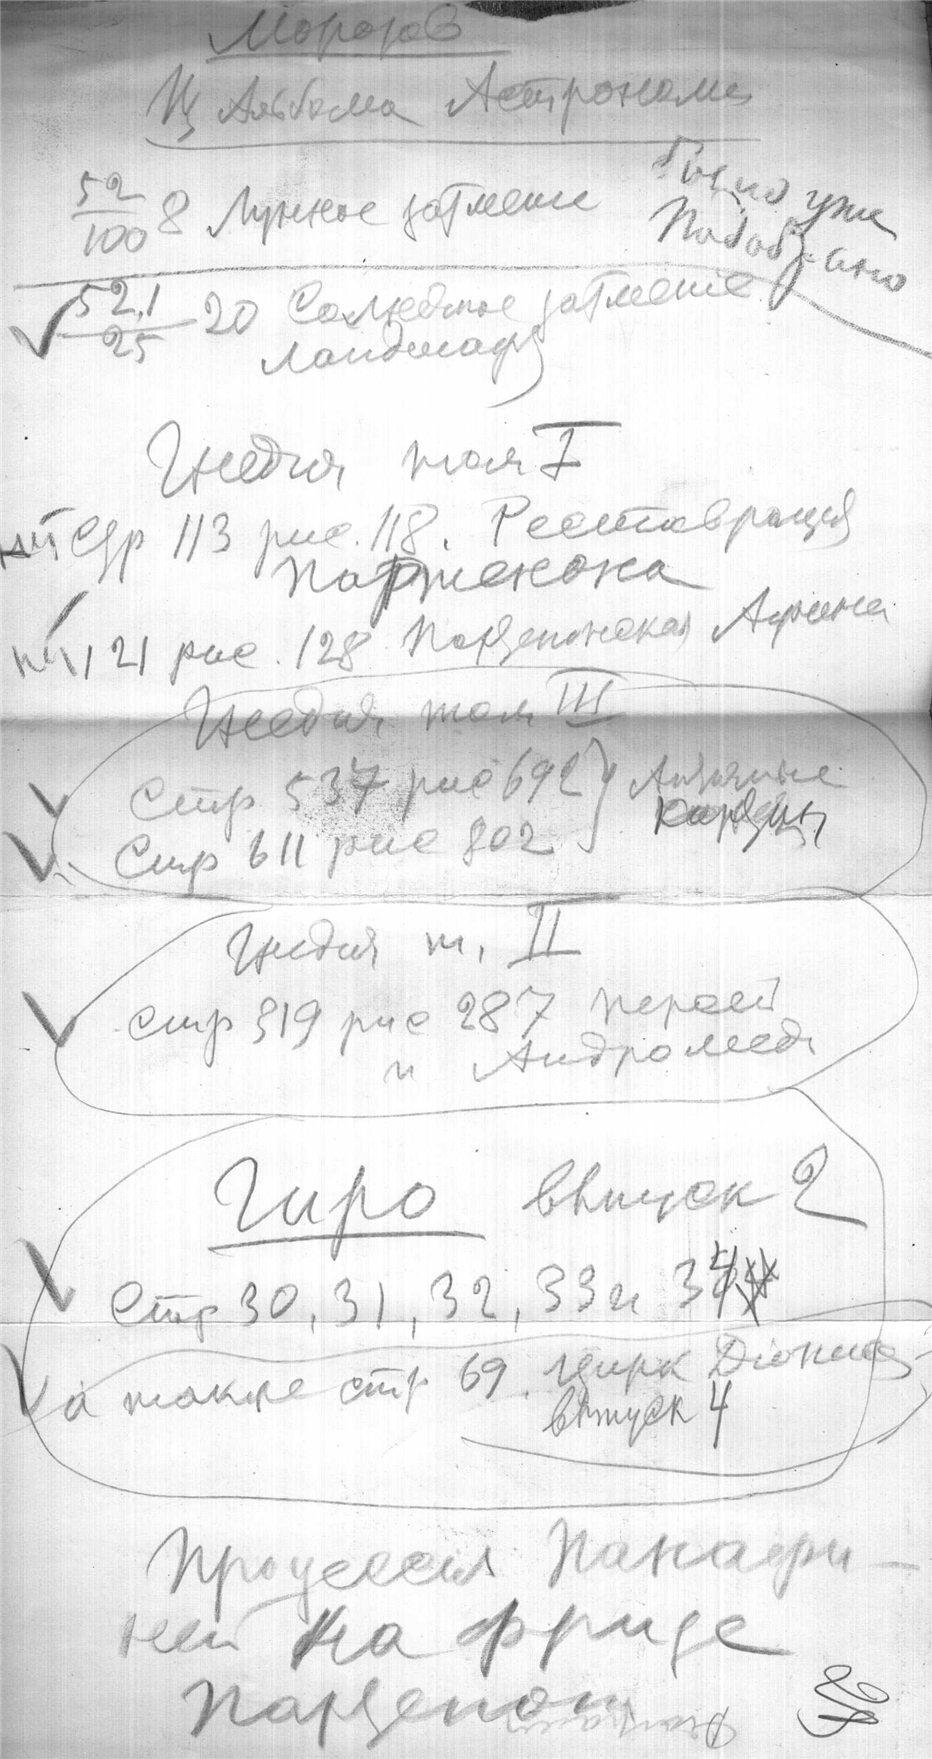 Морозов
Из Альбома Астрономи
52/100 8 Лунное затмение
было уже
Подобрано
52.1/25 20 Солнечное затмение
ландшафт
Гнедич том I
Стр 113 рис. 118. Реставрация
Парженона
121 рис. 128 Парфенонская Афина
Гнедич том III
Стр 537 рис 692
Стр 611 рис 802
картины
Гнедич т. II
стр 319 рис 287 Персей
и Андромеда
Гиро выпуск 2
Стр 30, 31, 32, 33 и 34
а также стр 69. цирк Диониса
выпуск 4
Процессия Панафи-
ней на фризе
Парфенон